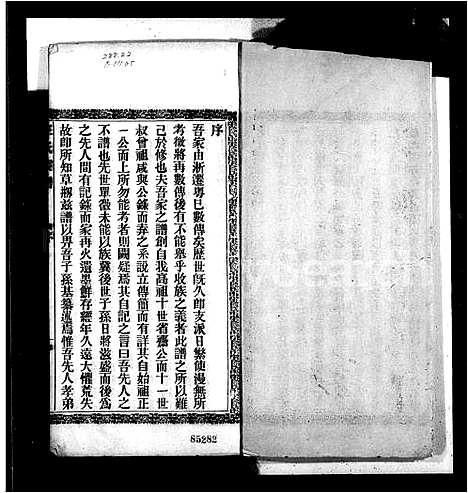 序
吾家由浙遷粵已數傳矣歷世既久卽支派日繁使漫無所
考徵將再數傳後有不能舉乎收族之義者此譜之所以雖
己於修也夫吾家之譜創自我高祖十世省齋公而十一世
叔曾祖咸與公錄而春之系說立傳簡而有詳其自始祖正
一公而上所勿能考者則闕疑焉其自記之言曰吾先人之
不譜也先世單微未能以族冀後世子孫日將滋盛而後為
之先人間有記錄而家再火遺墨鮮存經年久遠大懼荒失
故卽所知草剏茲譜以畀吾子孫基纂述焉惟吾先人孝弟
288.22
85282